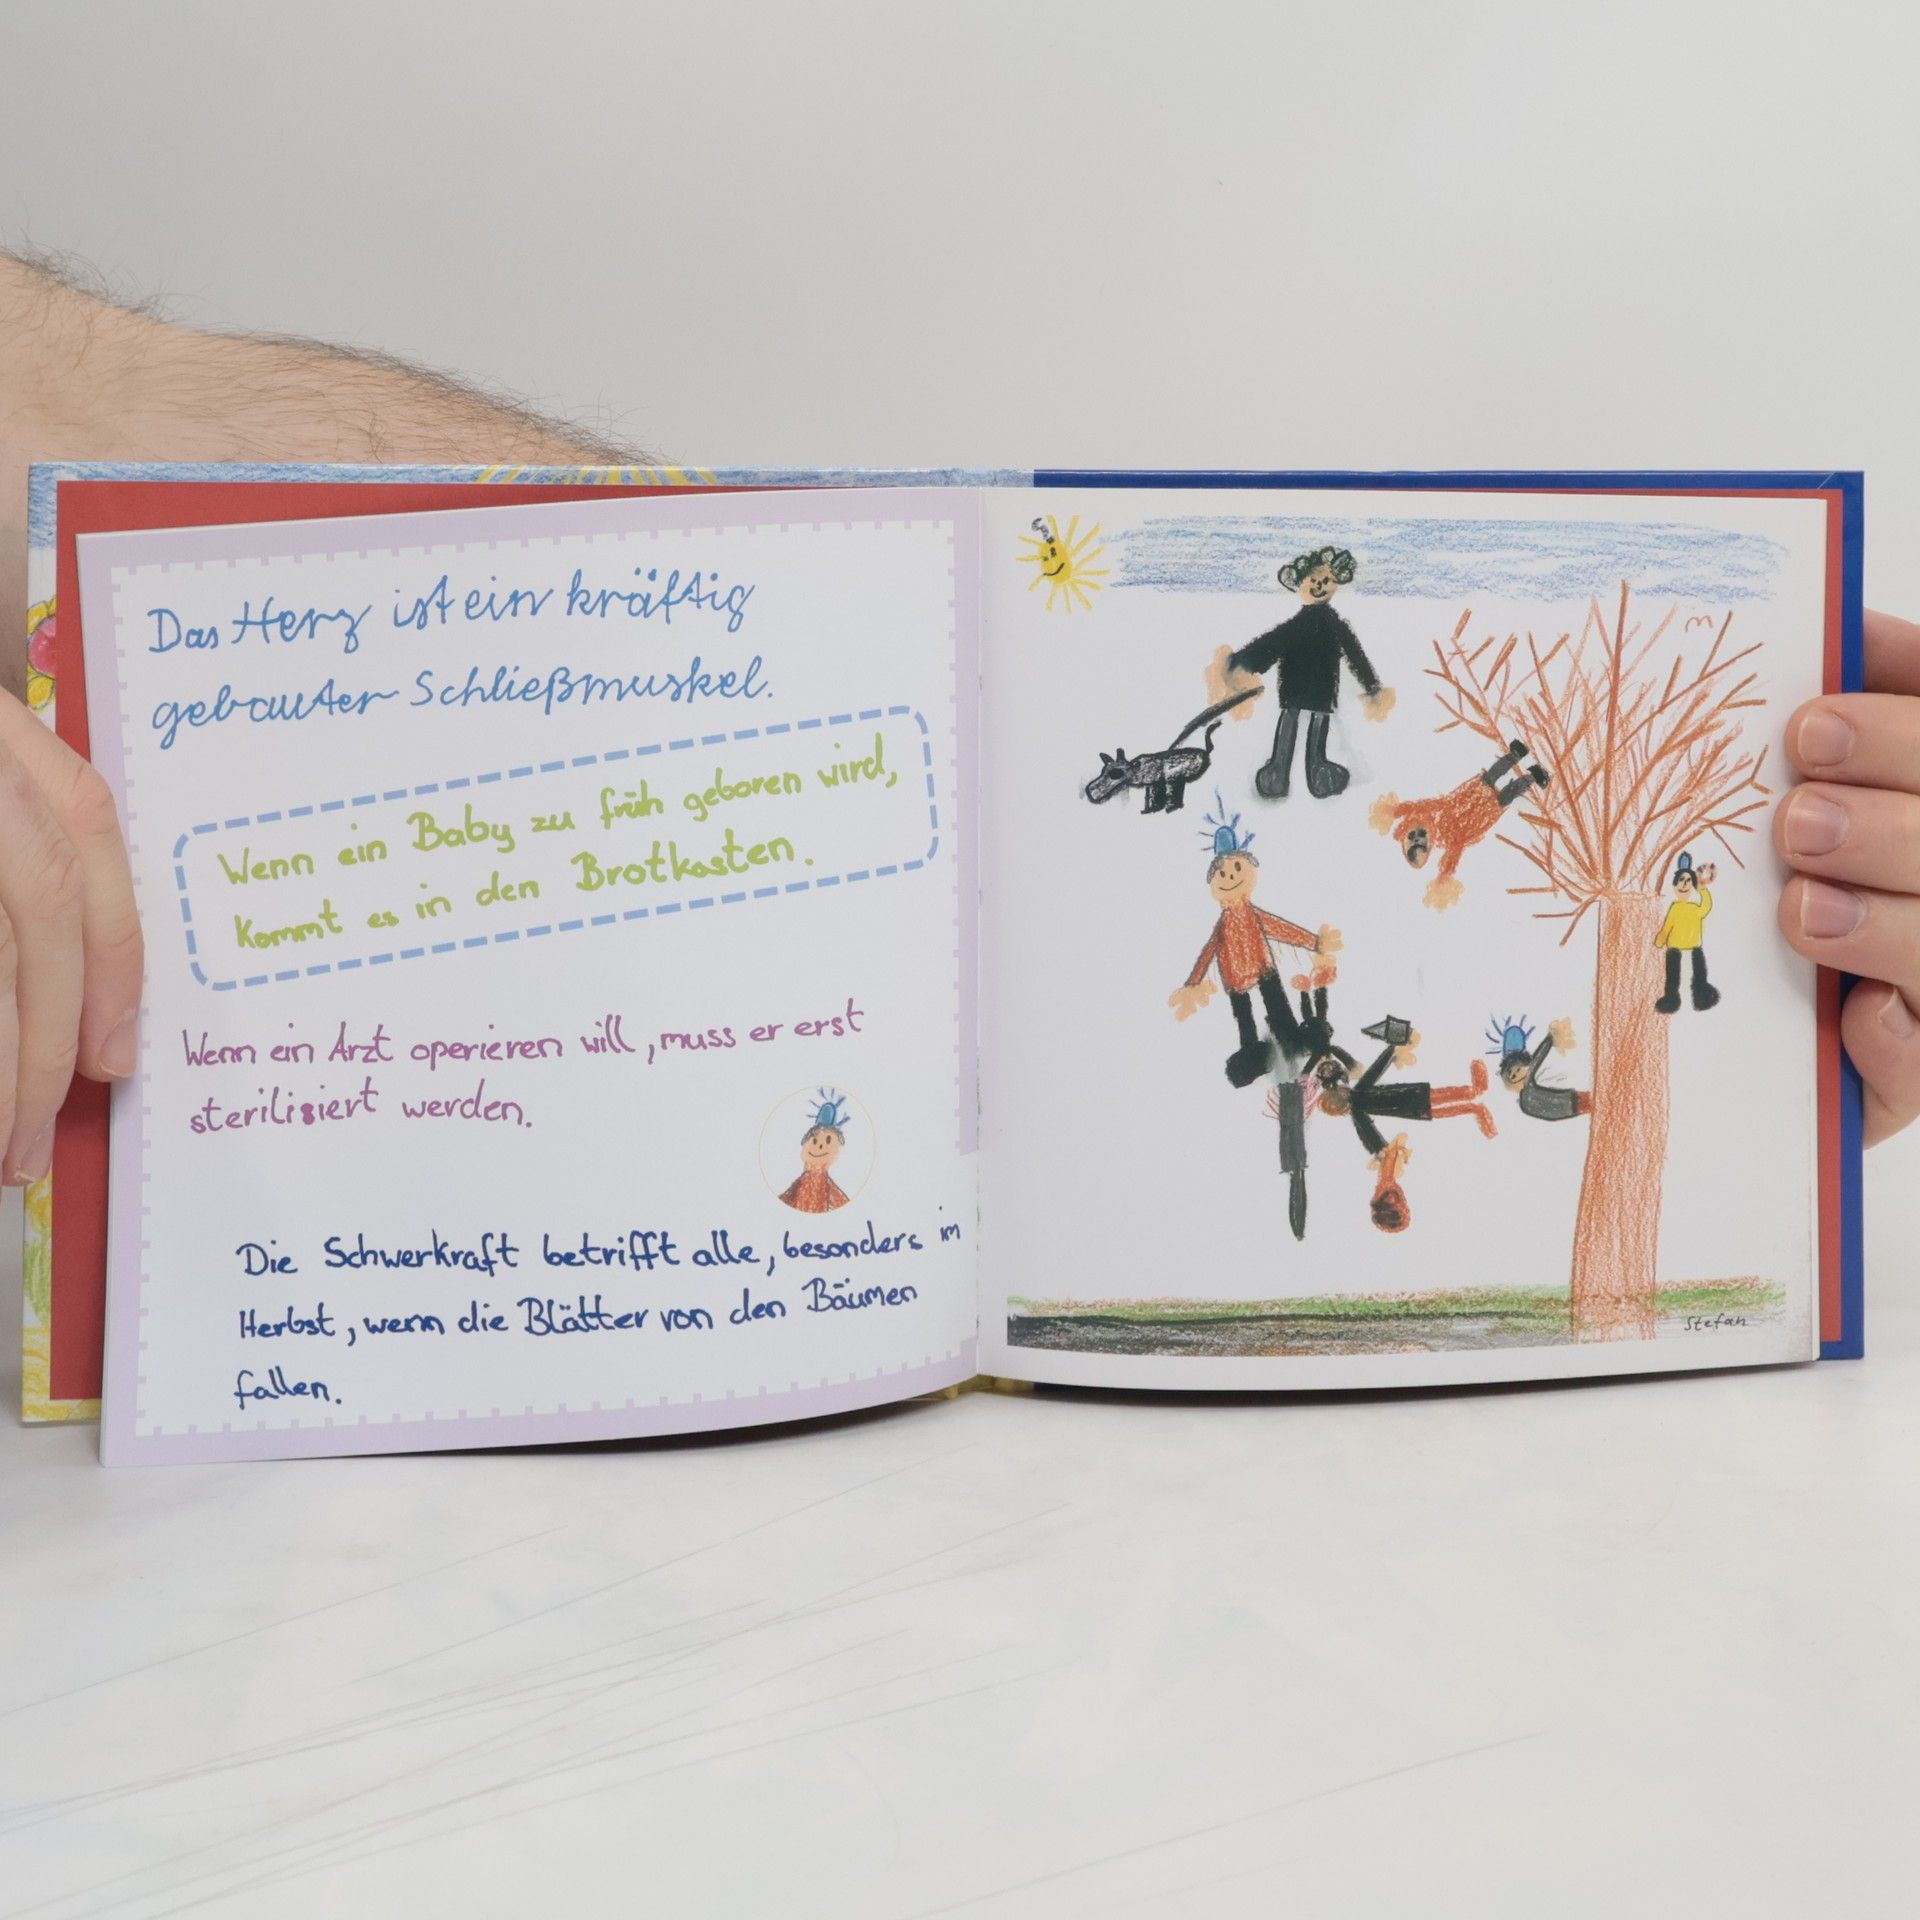 Das Herz ist ein kräftig
gebauter Schließmuskel.
Wenn ein Baby zu früh geboren wird,
kommt es in den Brotkasten.
Wenn ein Arzt operieren will, muss er erst
sterilisiert werden.
Die Schwerkraft betrifft alle, besonders im
Herbst, wenn die Blätter von den Bäumen
fallen.
Stefan